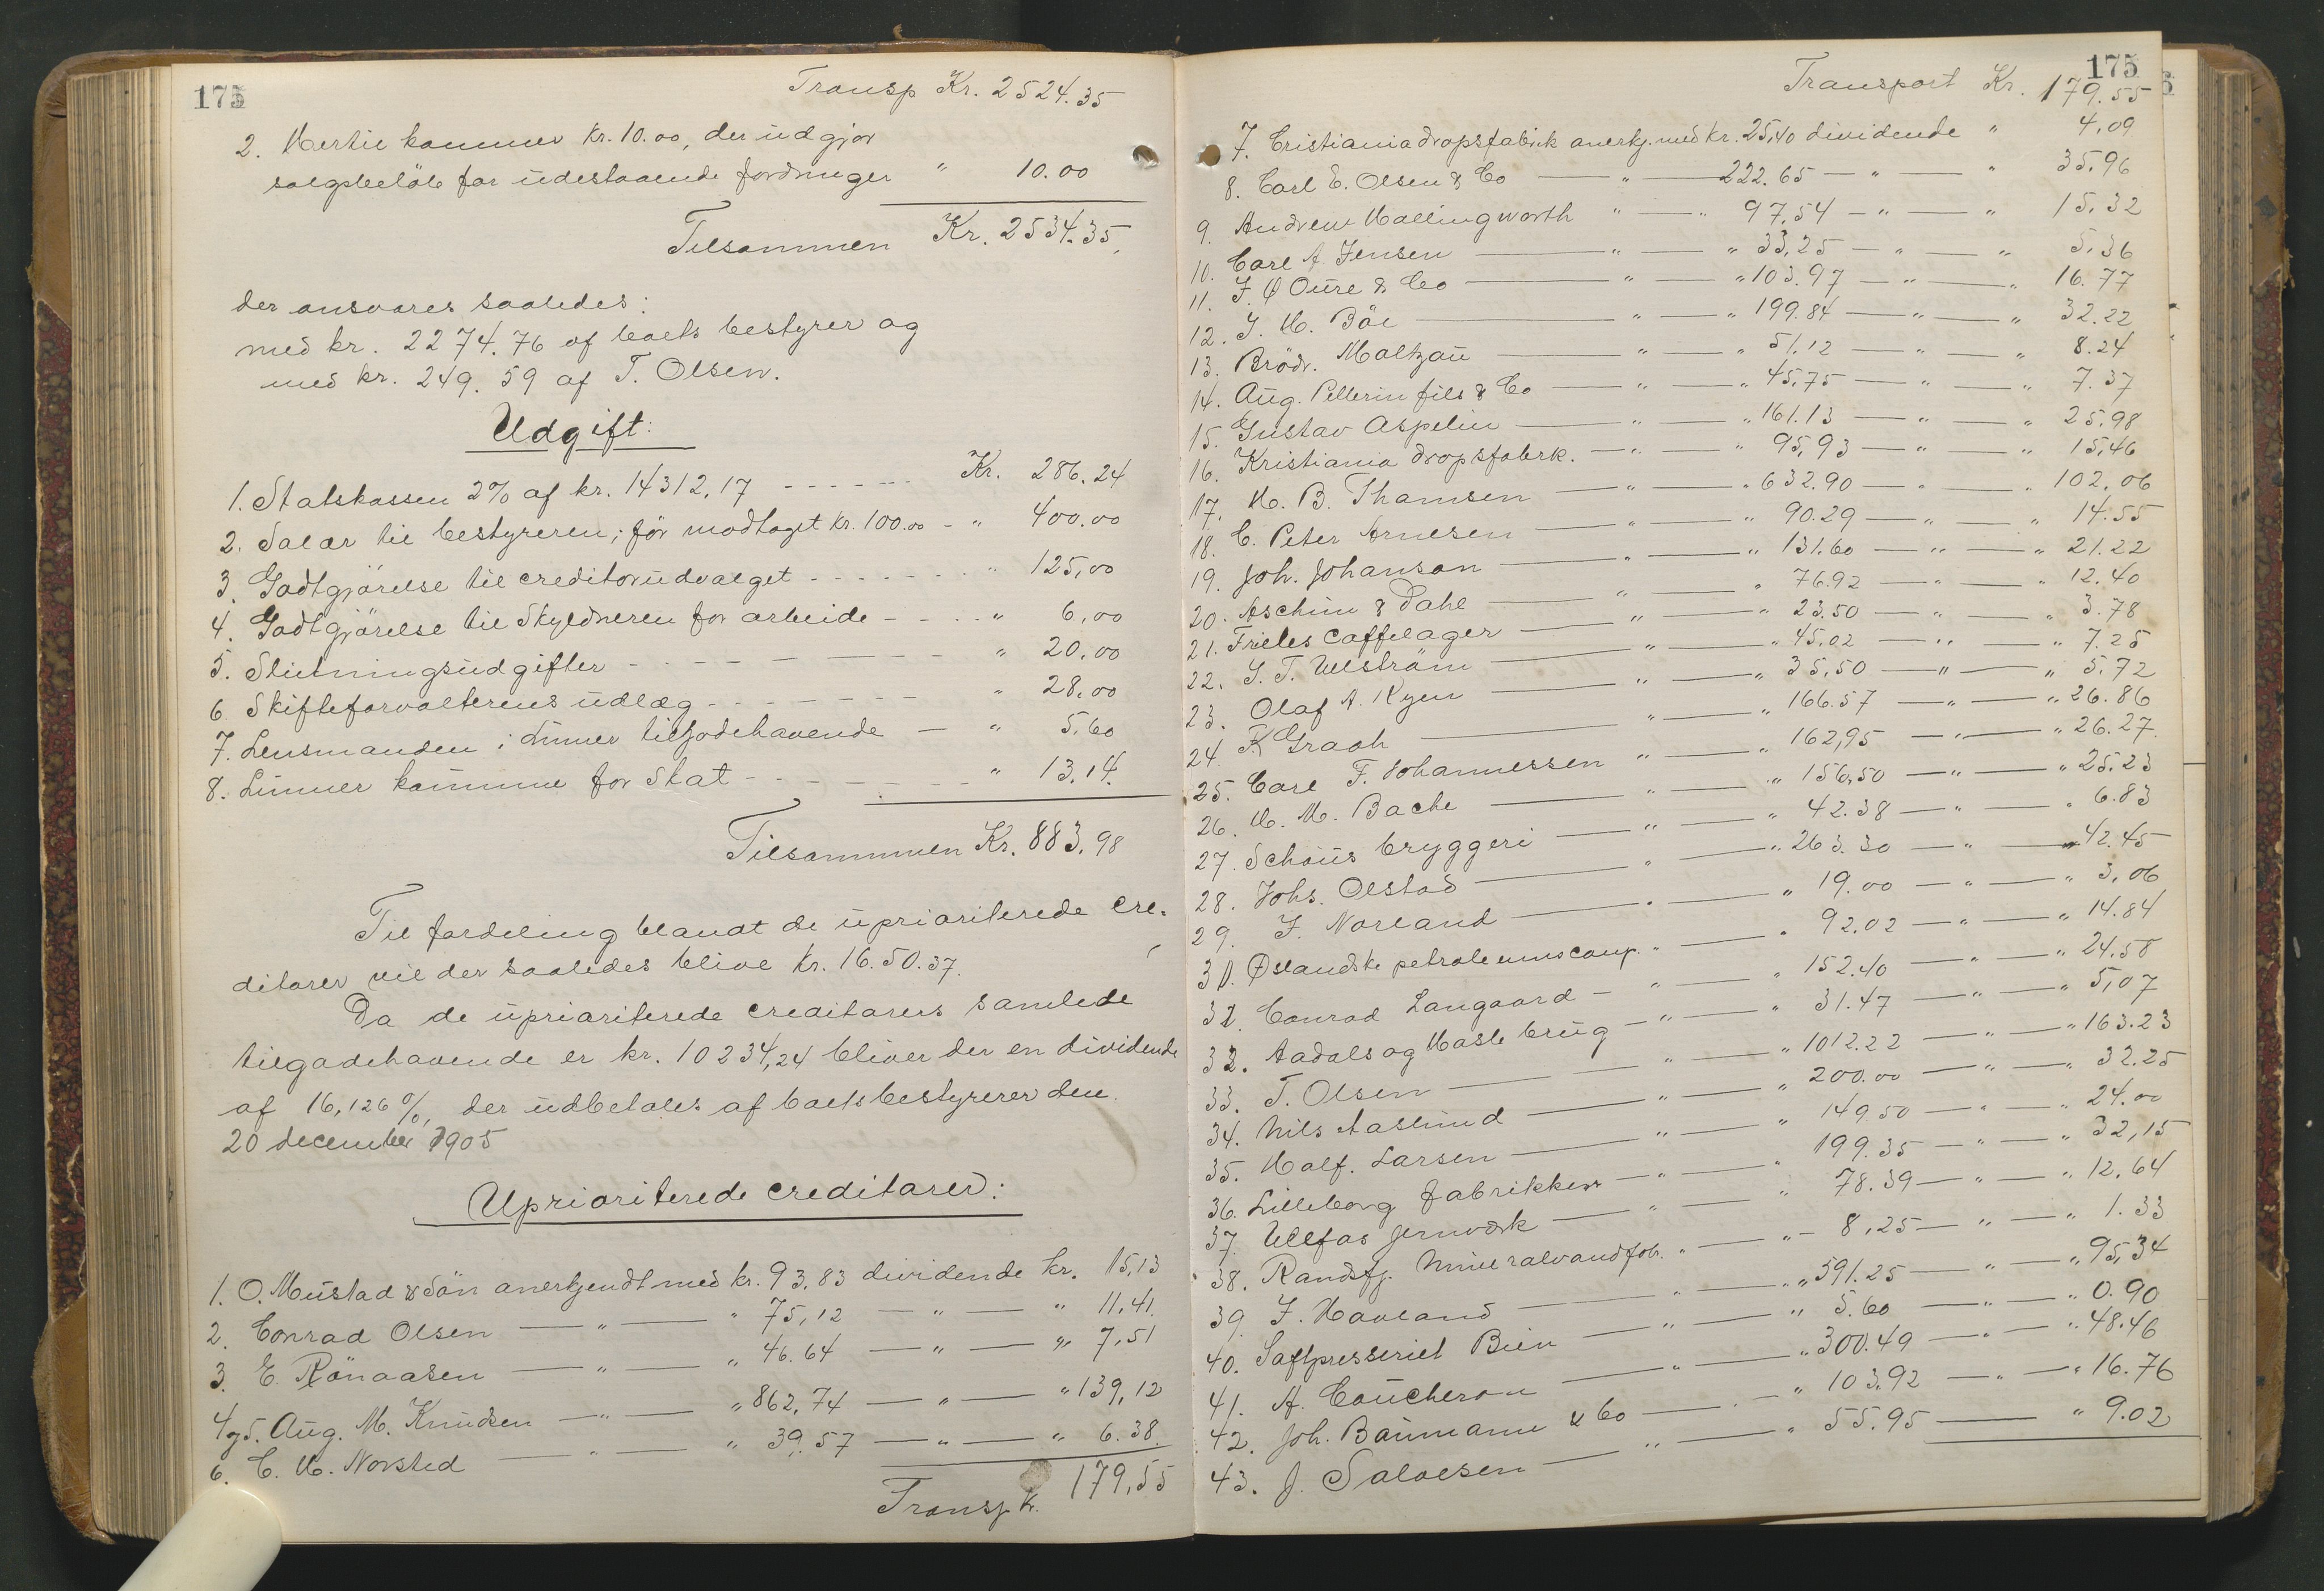 175
Transp Kr. 2524.35
2. Hertil kommer kr. 10.00, der udgjør
salgsbeløb for udestaaende fordringer " 10.00
Tilsammen Kr. 2534.35.
der ansvares saaledes:
med kr. 2274.76 af boets bestyrer og
med kr. 249.59 af T. Olsen.
Udgift:
1. Statskassen 2% af kr. 14312,17 - - - - - - Kr. 286.24
2. Salær til bestyreren; før modtaget kr. 100.00 - " 400.00
3. Godtgjörelse til creditorudvalget - - - - - - - " 125,00
4. Godtgjörelse til Skyldneren for arbeide - - - - " 6,00
5. Slutningsudgifter - - - - - - - - " 20,00
6. Skifteforvalterens udlæg - - - - - - " 28,00
7. Lensmanden i Lunner tilgodehavende - " 5,60
8. Lunner kommune for Skat - - - - - - - " 13.14.
Tilsammen Kr. 883.98
Til fordeling blandt de uprioriterede cre-
ditorer vil der saaledes blive kr. 16.50.37.
Da de uprioriterede creditorers samlede
tilgodehavende er kr. 10234,24 bliver der en dividende
af 16,126%, der udbetales af boets bestyrer den
20 december 1905
Uprioriterede creditorer:
1. O. Mustad & Sön anerkjendt med kr. 93.83 dividende kr. 15,13
2. Conrad Olsen — " — " 75,12 — " — " 11.41.
3. E. Rönaasen — " — " 46.64 — " — " 7,51
4 og 5. Aug. M. Knudsen — " — " 862,74 — " — " 139,12
6. C. H. Norsted — " — " 39.57 — " — " 6.38.
Transp. k. 179,55
175
Transport Kr. 179.55
7. Cristiania dropsfabrik anerkj. med kr. 25,40 dividende " 4,09
8. Carl E. Olsen & Co — " — 222.65 — " — " 35.96
9. Andrew Hallingworth " — " 97,54 — " — " 15,32
10. Carl A. Jensen — " — " 33,25 — " — " 5,36
11. J. Ø Oure & Co — " — " 103.97 — " — " 16.77
12. J. H. Böe — " — " 199.84 — " — " 32.22
13. Brödr. Maltzau — " — " 51,12 — " — " 8.24
14. Aug. Pellerin fils & Co — " — " 45,75 — " — " 7.37
15. Gustav Aspelin — " — " 161.13 — " — " 25,98
16. Kristiania dropsfabrk. — " — " 95,93 — " — " 15,46
17. H. B. Thamsen — " — " 632.90 — " — " 102,06
18. C. Peter Arnesen — " — " 90.29 — " — " 14.55
19. Joh. Johanson — " — " 131.60 — " — " 21.22
20. Aschim & Dahl — " — " 76.92 — " — " 12.40
21. Frieles Caffelager — " — " 23.50 — " — " 3.78
22. S. T. Ulström — " — " 45,02 — " — " 7.25
23. Olaf A. Ryen — " — " 35,50 — " — " 5,72
24. K Graah — " — " 166.57 — " — " 26.86
25. Carl F. Johannessen " — " 162,95 — " — " 26.27.
26. H. M. Bache — " — " 156,50 — " — " 25,23
27. Schous bryggeri — " — " 42.38 — " — " 6.83
28. Johs. Olstad — " — " 263.30 — " — " 42.45
29. J. Norland — " — " 19.00 — " — " 3,06
30. Østlandske petroleumscomp. " — " 92.02 — " — " 14.84
32. Conrad Langaard — " — " 152.40 — " — " 24.58
32. Aadals og Hasle brug — " — " 31.47 — " — " 5,07
33. T. Olsen — " — " 1012.22 — " — " 163.23
34. Nils Aaslund — " — " 200.00 — " — " 32.25
35. Half. Larsen — " — " 149.50 — " — " 24.00
36. Lilleborg fabrikker — " — " 199.35 — " — " 32,15
37. Ulefos Jernværk — " — " 78.39 — " — " 12,64
38. Randsfj. Mineralvandfab. " — " 8,25 — " — " 1.33
39. J. Havland — " — " 591.25 — " — " 95,34
40. Saftpresseriet Bien — " — " 5.60 — " — " 0.90
41. A. Coucheron — " — " 300.49 — " — " 48.46
42. Joh. Baumann & Co — " — " 103.92 — " — " 16.76
43. J. Salvesen — " — " 55.95 — " 9.02